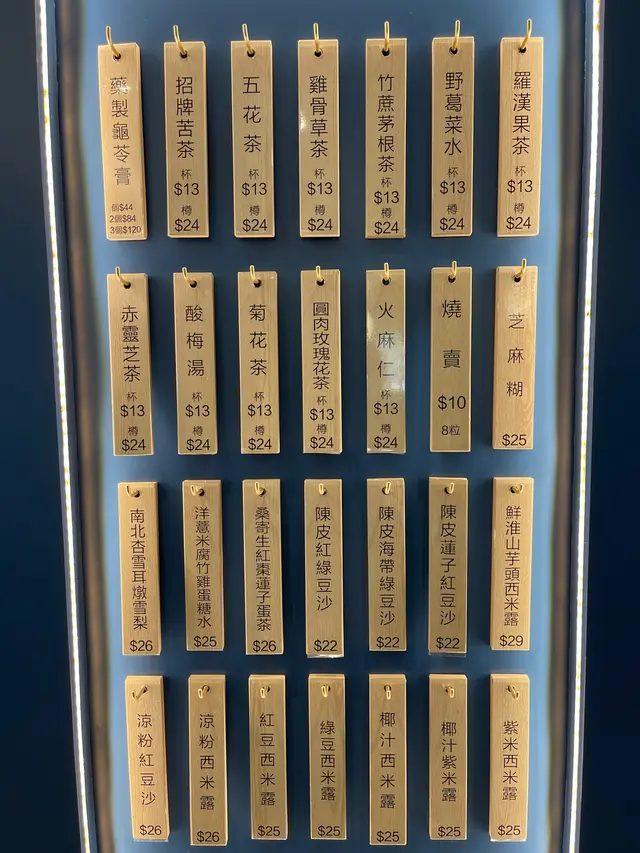 藥製龜苓膏
個$44
2個$84
3個$120
招牌苦茶
杯
$13
樽
$24
五花茶
杯
$13
樽
$24
雞骨草茶
杯
$13
樽
$24
竹蔗茅根茶
杯
$13
樽
$24
野葛菜水
杯
$13
樽
$24
羅漢果茶
杯
$13
樽
$24
赤靈芝茶
杯
$13
樽
$24
酸梅湯
杯
$13
樽
$24
菊花茶
杯
$13
樽
$24
圓肉玫瑰花茶
杯
$13
樽
$24
火麻仁
杯
$13
樽
$24
燒賣
$10
8粒
芝麻糊
$25
南北杏雪耳燉雪梨
$26
洋薏米腐竹雞蛋糖水
$25
桑寄生紅棗蓮子蛋茶
$26
陳皮紅綠豆沙
$22
陳皮海帶綠豆沙
$22
陳皮蓮子紅豆沙
$22
鮮淮山芋頭西米露
$29
涼粉紅豆沙
$26
涼粉西米露
$26
紅豆西米露
$25
綠豆西米露
$25
椰汁西米露
$25
椰汁紫米露
$25
紫米西米露
$25